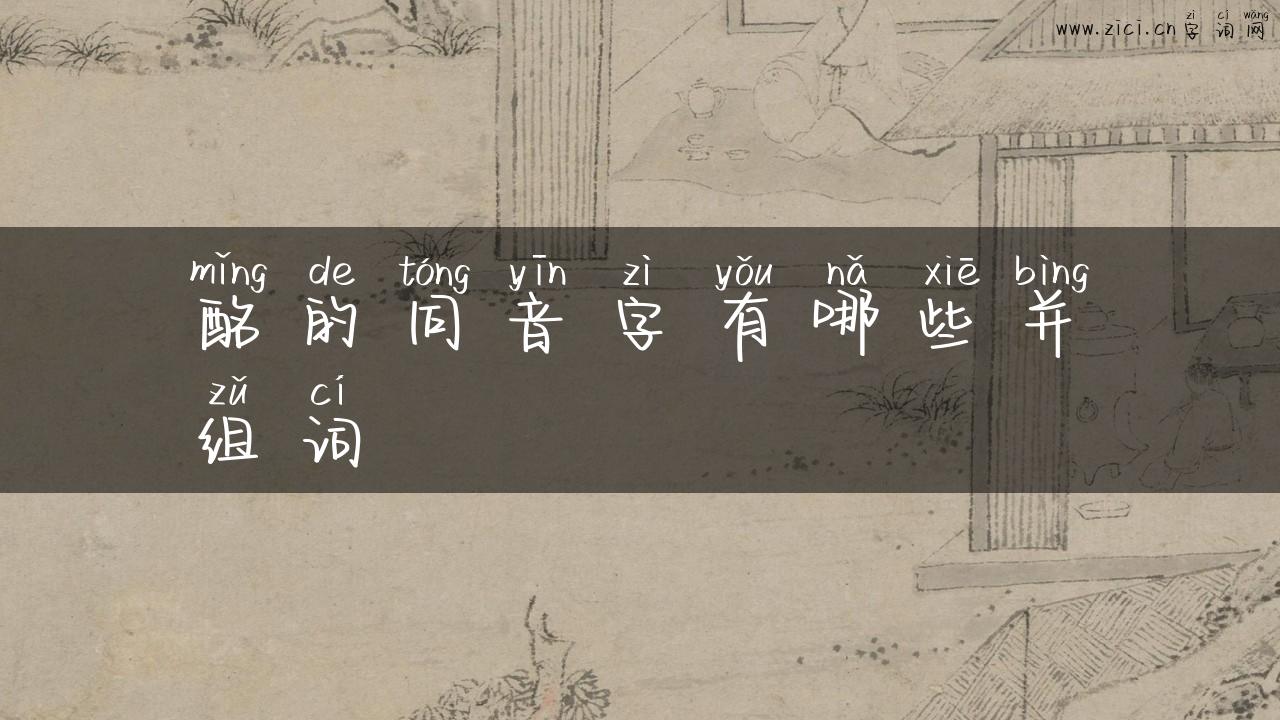 zì cí wǎng
www.zici.cn 字词网
mǐng de tóng yīn zì yǒu nǎ xiē bìng
酩的同音字有哪些并
zǔ cí
组词